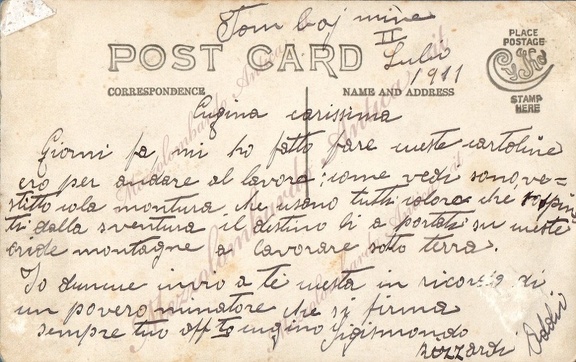 Tom boj mine
II Lulio 1911
POST CARD
PLACE
POSTAGE
CYKO
STAMP
HERE
CORRESPONDENCE
NAME AND ADDRESS
Cugina carissima
Giorni fa mi ho fatto fare queste cartoline
ero per andare al lavoro: come vedi sono, ve-
stitto cola montura, che usano tutti coloro che spin
ti dalla sventura il destino li a portati su queste
cride montagne a lavorare sotto terra.
Io dunque invio a te questa in ricordo di
un povero minatore che si firma
sempre tuo affto cugino Sigismondo
Rizzardi Addio